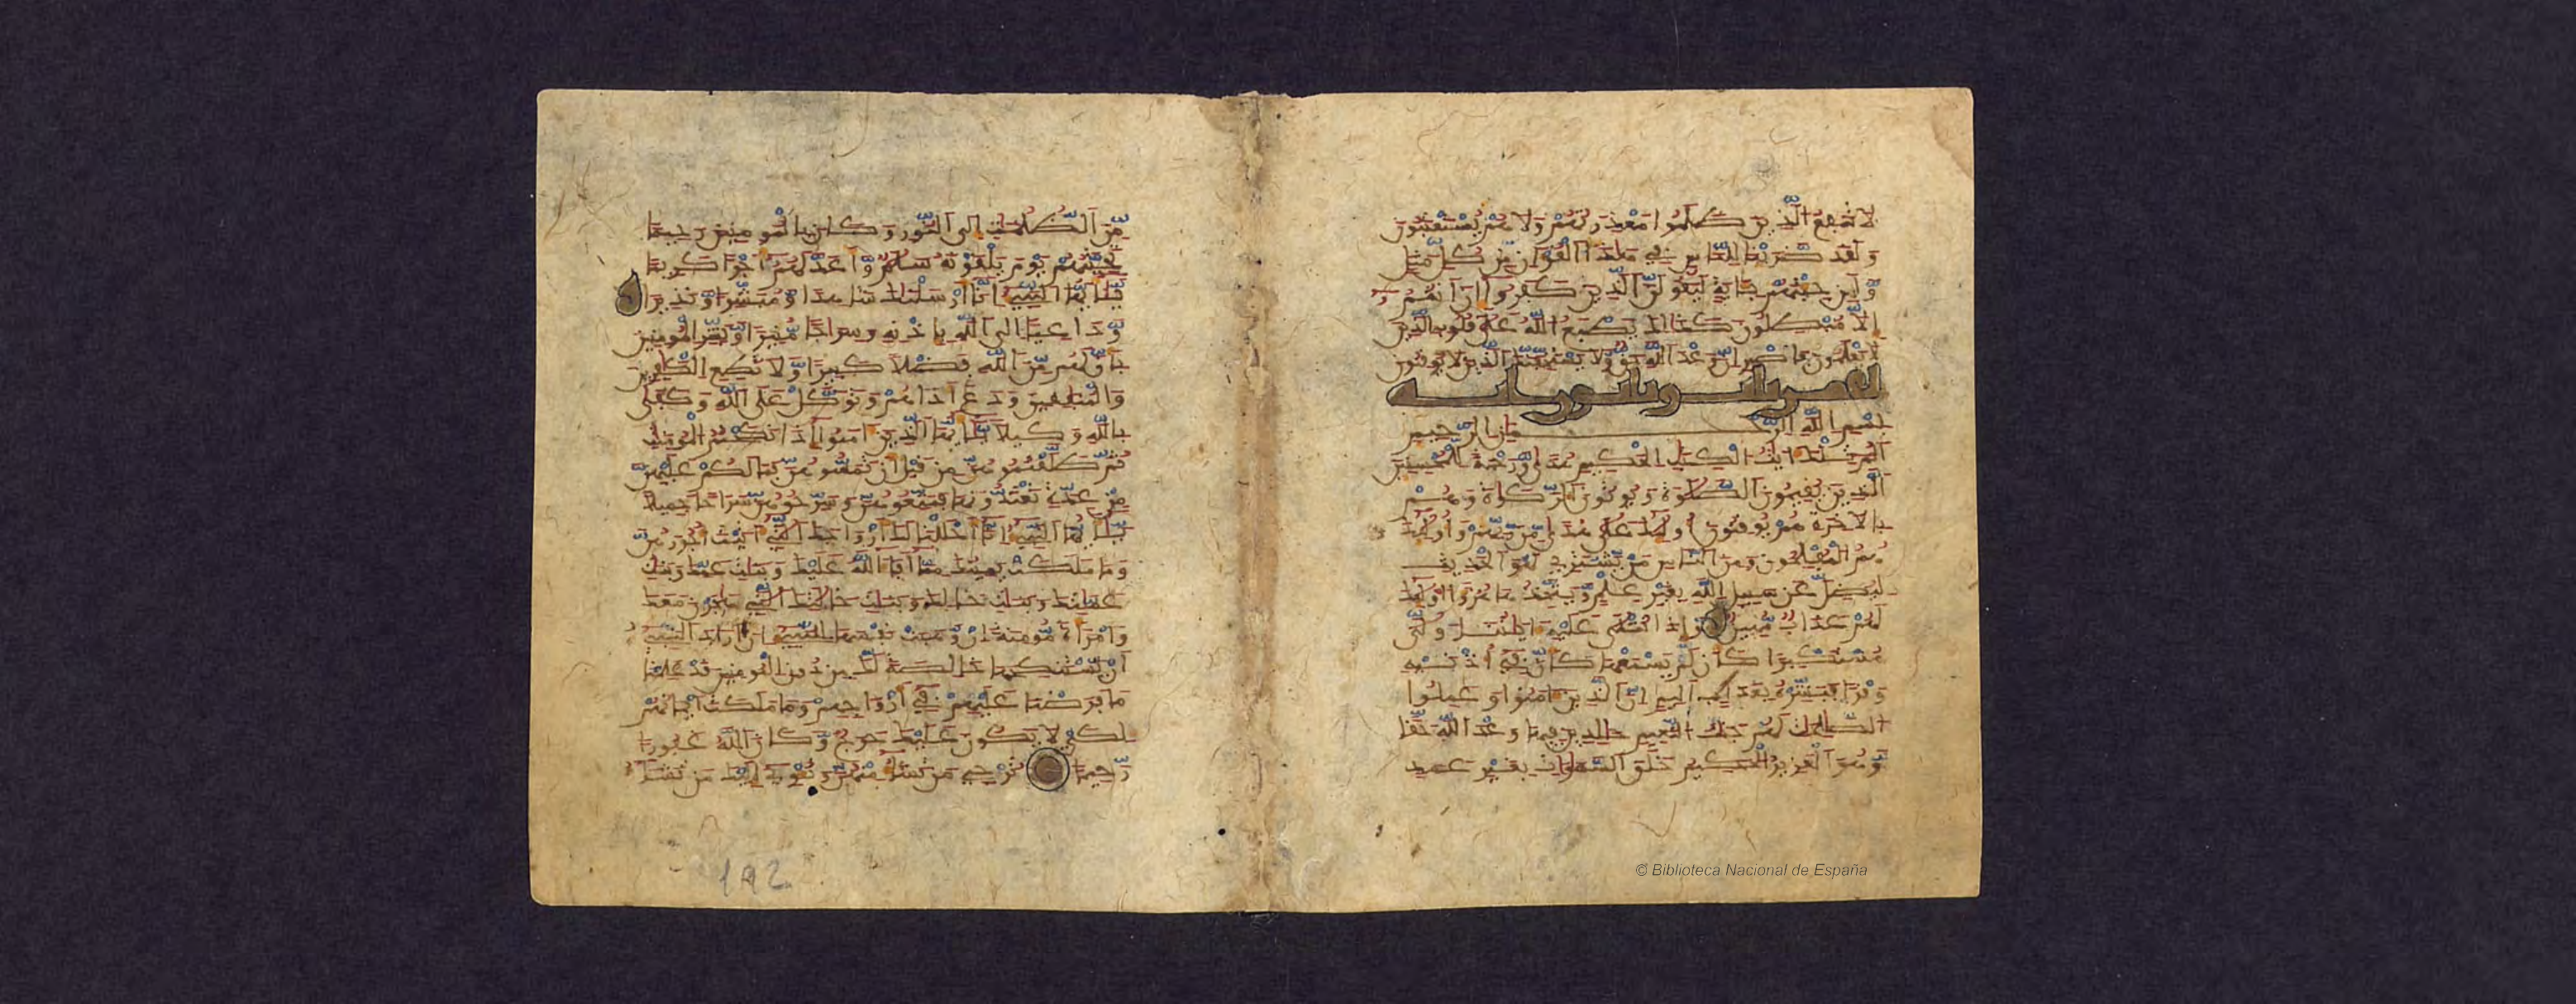 لا تنفع الذين ظلموا معذرتهم ولا هم يستعتبون
ولقد ضربنا للناس في هذا القرءان من كل مثل
ولين جيتهم بـاية ليقولن الذين كفروا ان انتم
الا مبطلون كذلك يطبع الله على قلوب الذين
لا يعلمون فاصبر ان وعد الله حق ولا يستخفنك الذين لا يوقنون
بسم الله الرحمن الرحيم
الم تلك ايت الكتب الحكيم هدى ورحمة للمحسنين
الذين يقيمون الصلوة ويوتون الزكوة وهم
بالاخرة هم يوقنون اوليك على هدى من ربهم واوليك
هم المفلحون ومن الناس من يشتري لهو الحديث
ليضل عن سبيل الله بغير علم ويتخذها هزوا اوليك
لهم عذاب مهين واذا تتلى عليه ايتنا ولى
مستكبرا كان لم يسمعها كان في اذنيه
وقرا فبشره بعذاب اليم ان الذين امنوا وعملوا
الصلحت لهم جنت النعيم خلدين فيها وعد الله حقا
وهو العزيز الحكيم خلق السموات بغير عمد
من الظلمت الى النور وكان بالمومنين رحيما
تحيتهم يوم يلقونه سلم واعد لهم اجرا كريما
يايها النبي انا ارسلنك شهدا ومبشرا ونذيرا
وداعيا الى الله باذنه وسراجا منيرا وبشر المومنين
بان لهم من الله فضلا كبيرا ولا تطع الكفرين
والمنفقين ودع اذاهم وتوكل على الله وكفى
بالله وكيلا يايها الذين امنوا اذا نكحتم المومنت
ثم طلقتموهن من قبل ان تمسوهن فما لكم عليهن
من عدة تعتدونها فمتعوهن وسرحوهن سراحا جميلا
يايها النبي انا احللنا لك ازواجك التي اتيت اجورهن
وما ملكت يمينك مما افا الله عليك وبنات عمك وبنات
عمتك وبنات خالك وبنات خلتك التي هاجرن معك
وامراة مومنة ان وهبت نفسها للنبي ان اراد النبي
ان يستنكحها خالصة لك من دون المومنين قد علمنا
ما فرضنا عليهم في ازواجهم وما ملكت ايمنهم
لكي لا يكون عليك حرج وكان الله غفورا
رحيما ترجي من تشا منهن وتوي اليك من تشا
192
© Biblioteca Nacional de España